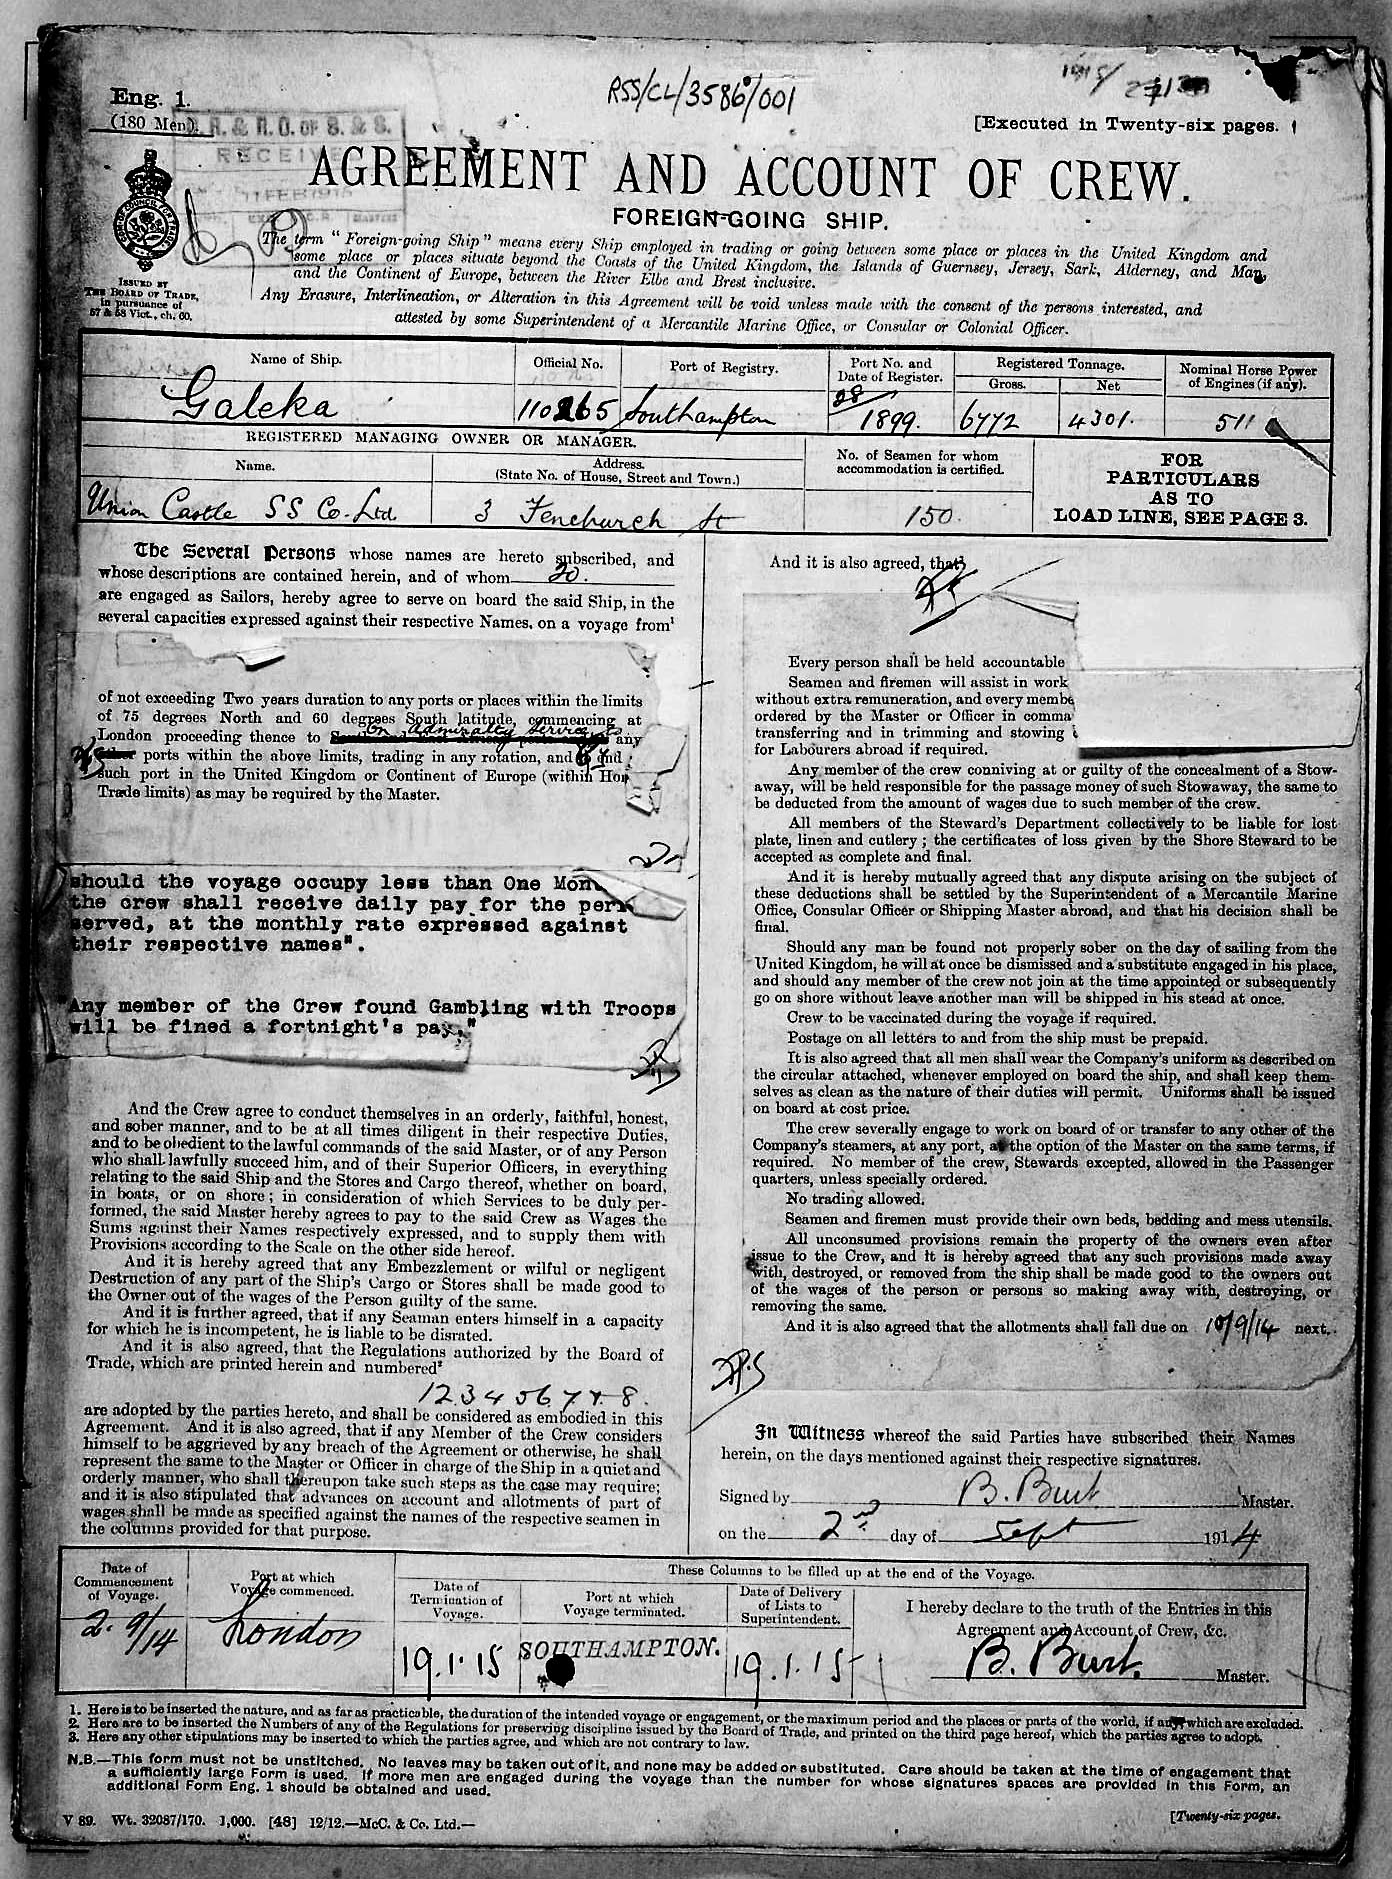 RSS/CL/3586/001
Eng. 1.
(180 Men)
[Executed in Twenty-six pages.
R. & R.O. OF S. & S.
RECEIVE
11 FEB 1915
AGREEMENT AND ACCOUNT OF CREW.
FOREIGN-GOING SHIP.
ISSUED BY
THE BOARD OF TRADE,
in pursuance of
57 & 58 Vict., ch. 60.
The term "Foreign-going Ship" means every Ship employed in trading or going between some place or places in the United Kingdom and
some place or places situate beyond the Coasts of the United Kingdom, the Islands of Guernsey, Jersey, Sark, Alderney, and Man,
and the Continent of Europe, between the River Elbe and Brest inclusive.
Any Erasure, Interlineation, or Alteration in this Agreement will be void unless made with the consent of the persons interested, and
attested by some Superintendent of a Mercantile Marine Office, or Consular or Colonial Officer.
Name of Ship. Official No. Port of Registry. Port No. and Date of Register. Registered Tonnage. Gross. Net Nominal Horse Power of Engines (if any).
Galeka 110265 Southampton 28/1899. 6772 4301. 511
REGISTERED MANAGING OWNER OR MANAGER.
Name. Address. (State No. of House, Street and Town.) No. of Seamen for whom accommodation is certified.
Union Castle SS Co. Ltd 3 Fenchurch St 150.
FOR
PARTICULARS
AS TO
LOAD LINE, SEE PAGE 3.
The Several Persons whose names are hereto subscribed, and
whose descriptions are contained herein, and of whom 20.
are engaged as Sailors, hereby agree to serve on board the said Ship, in the
several capacities expressed against their respective Names, on a voyage from¹
of not exceeding Two years duration to any ports or places within the limits
of 75 degrees North and 60 degrees South latitude, commencing at
on admiralty service to
London proceeding thence to any
ports within the above limits, trading in any rotation, and end
such port in the United Kingdom or Continent of Europe (within Hom
Trade limits) as may be required by the Master.
should the voyage occupy less than One Mon
the crew shall receive daily pay for the peri
served, at the monthly rate expressed against
their respective names".
"Any member of the Crew found Gambling with Troops
will be fined a fortnight's pay."
And the Crew agree to conduct themselves in an orderly, faithful, honest,
and sober manner, and to be at all times diligent in their respective Duties,
and to be obedient to the lawful commands of the said Master, or of any Person
who shall lawfully succeed him, and of their Superior Officers, in everything
relating to the said Ship and the Stores and Cargo thereof, whether on board,
in boats, or on shore; in consideration of which Services to be duly per-
formed, the said Master hereby agrees to pay to the said Crew as Wages the
Sums against their Names respectively expressed, and to supply them with
Provisions according to the Scale on the other side hereof.
And it is hereby agreed that any Embezzlement or wilful or negligent
Destruction of any part of the Ship's Cargo or Stores shall be made good to
the Owner out of the wages of the Person guilty of the same.
And it is further agreed, that if any Seaman enters himself in a capacity
for which he is incompetent, he is liable to be disrated.
And it is also agreed, that the Regulations authorized by the Board of
Trade, which are printed herein and numbered²
1 2 3 4 5 6 7 & 8.
are adopted by the parties hereto, and shall be considered as embodied in this
Agreement. And it is also agreed, that if any Member of the Crew considers
himself to be aggrieved by any breach of the Agreement or otherwise, he shall
represent the same to the Master or Officer in charge of the Ship in a quiet and
orderly manner, who shall thereupon take such steps as the case may require;
and it is also stipulated that advances on account and allotments of part of
wages shall be made as specified against the names of the respective seamen in
the columns provided for that purpose.
And it is also agreed, that³
Every person shall be held accountable
Seamen and firemen will assist in work
without extra remuneration, and every membe
ordered by the Master or Officer in comma
transferring and in trimming and stowing
for Labourers abroad if required.
Any member of the crew conniving at or guilty of the concealment of a Stow-
away, will be held responsible for the passage money of such Stowaway, the same to
be deducted from the amount of wages due to such member of the crew.
All members of the Steward's Department collectively to be liable for lost
plate, linen and cutlery; the certificates of loss given by the Shore Steward to be
accepted as complete and final.
And it is hereby mutually agreed that any dispute arising on the subject of
these deductions shall be settled by the Superintendent of a Mercantile Marine
Office, Consular Officer or Shipping Master abroad, and that his decision shall be
final.
Should any man be found not properly sober on the day of sailing from the
United Kingdom, he will at once be dismissed and a substitute engaged in his place,
and should any member of the crew not join at the time appointed or subsequently
go on shore without leave another man will be shipped in his stead at once.
Crew to be vaccinated during the voyage if required.
Postage on all letters to and from the ship must be prepaid.
It is also agreed that all men shall wear the Company's uniform as described on
the circular attached, whenever employed on board the ship, and shall keep them-
selves as clean as the nature of their duties will permit. Uniforms shall be issued
on board at cost price.
The crew severally engage to work on board of or transfer to any other of the
Company's steamers, at any port, at the option of the Master on the same terms, if
required. No member of the crew, Stewards excepted, allowed in the Passenger
quarters, unless specially ordered.
No trading allowed.
Seamen and firemen must provide their own beds, bedding and mess utensils.
All unconsumed provisions remain the property of the owners even after
issue to the Crew, and it is hereby agreed that any such provisions made away
with, destroyed, or removed from the ship shall be made good to the owners out
of the wages of the person or persons so making away with, destroying, or
removing the same.
And it is also agreed that the allotments shall fall due on 10/9/14 next.
In Witness whereof the said Parties have subscribed their Names
herein, on the days mentioned against their respective signatures.
Signed by B. Burt Master.
on the 2nd day of Sept 1914
Date of Commencement of Voyage. Port at which Voyage commenced. These Columns to be filled up at the end of the Voyage.
Date of Termination of Voyage. Port at which Voyage terminated. Date of Delivery of Lists to Superintendent. I hereby declare to the truth of the Entries in this
Agreement and Account of Crew, &c.
2. 9/14 London 19.1.15 SOUTHAMPTON. 19.1.15 B. Burt. Master.
1. Here is to be inserted the nature, and as far as practicable, the duration of the intended voyage or engagement, or the maximum period and the places or parts of the world, if any, which are excluded.
2. Here are to be inserted the Numbers of any of the Regulations for preserving discipline issued by the Board of Trade, and printed on the third page hereof, which the parties agree to adopt.
3. Here any other stipulations may be inserted to which the parties agree, and which are not contrary to law.
N.B.—This form must not be unstitched. No leaves may be taken out of it, and none may be added or substituted. Care should be taken at the time of engagement that
a sufficiently large Form is used. If more men are engaged during the voyage than the number for whose signatures spaces are provided in this Form, an
additional Form Eng. 1 should be obtained and used.
V 89. Wt. 32087/170. 1,000. [48] 12/12.—McC. & Co. Ltd.—
[Twenty-six pages.